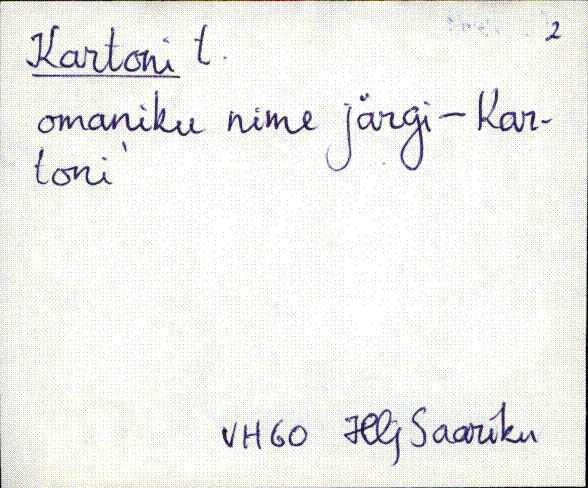 2
Kartoni t.
omaniku nime järgi – Kar-
toni'
VH60 Hlj Saariku